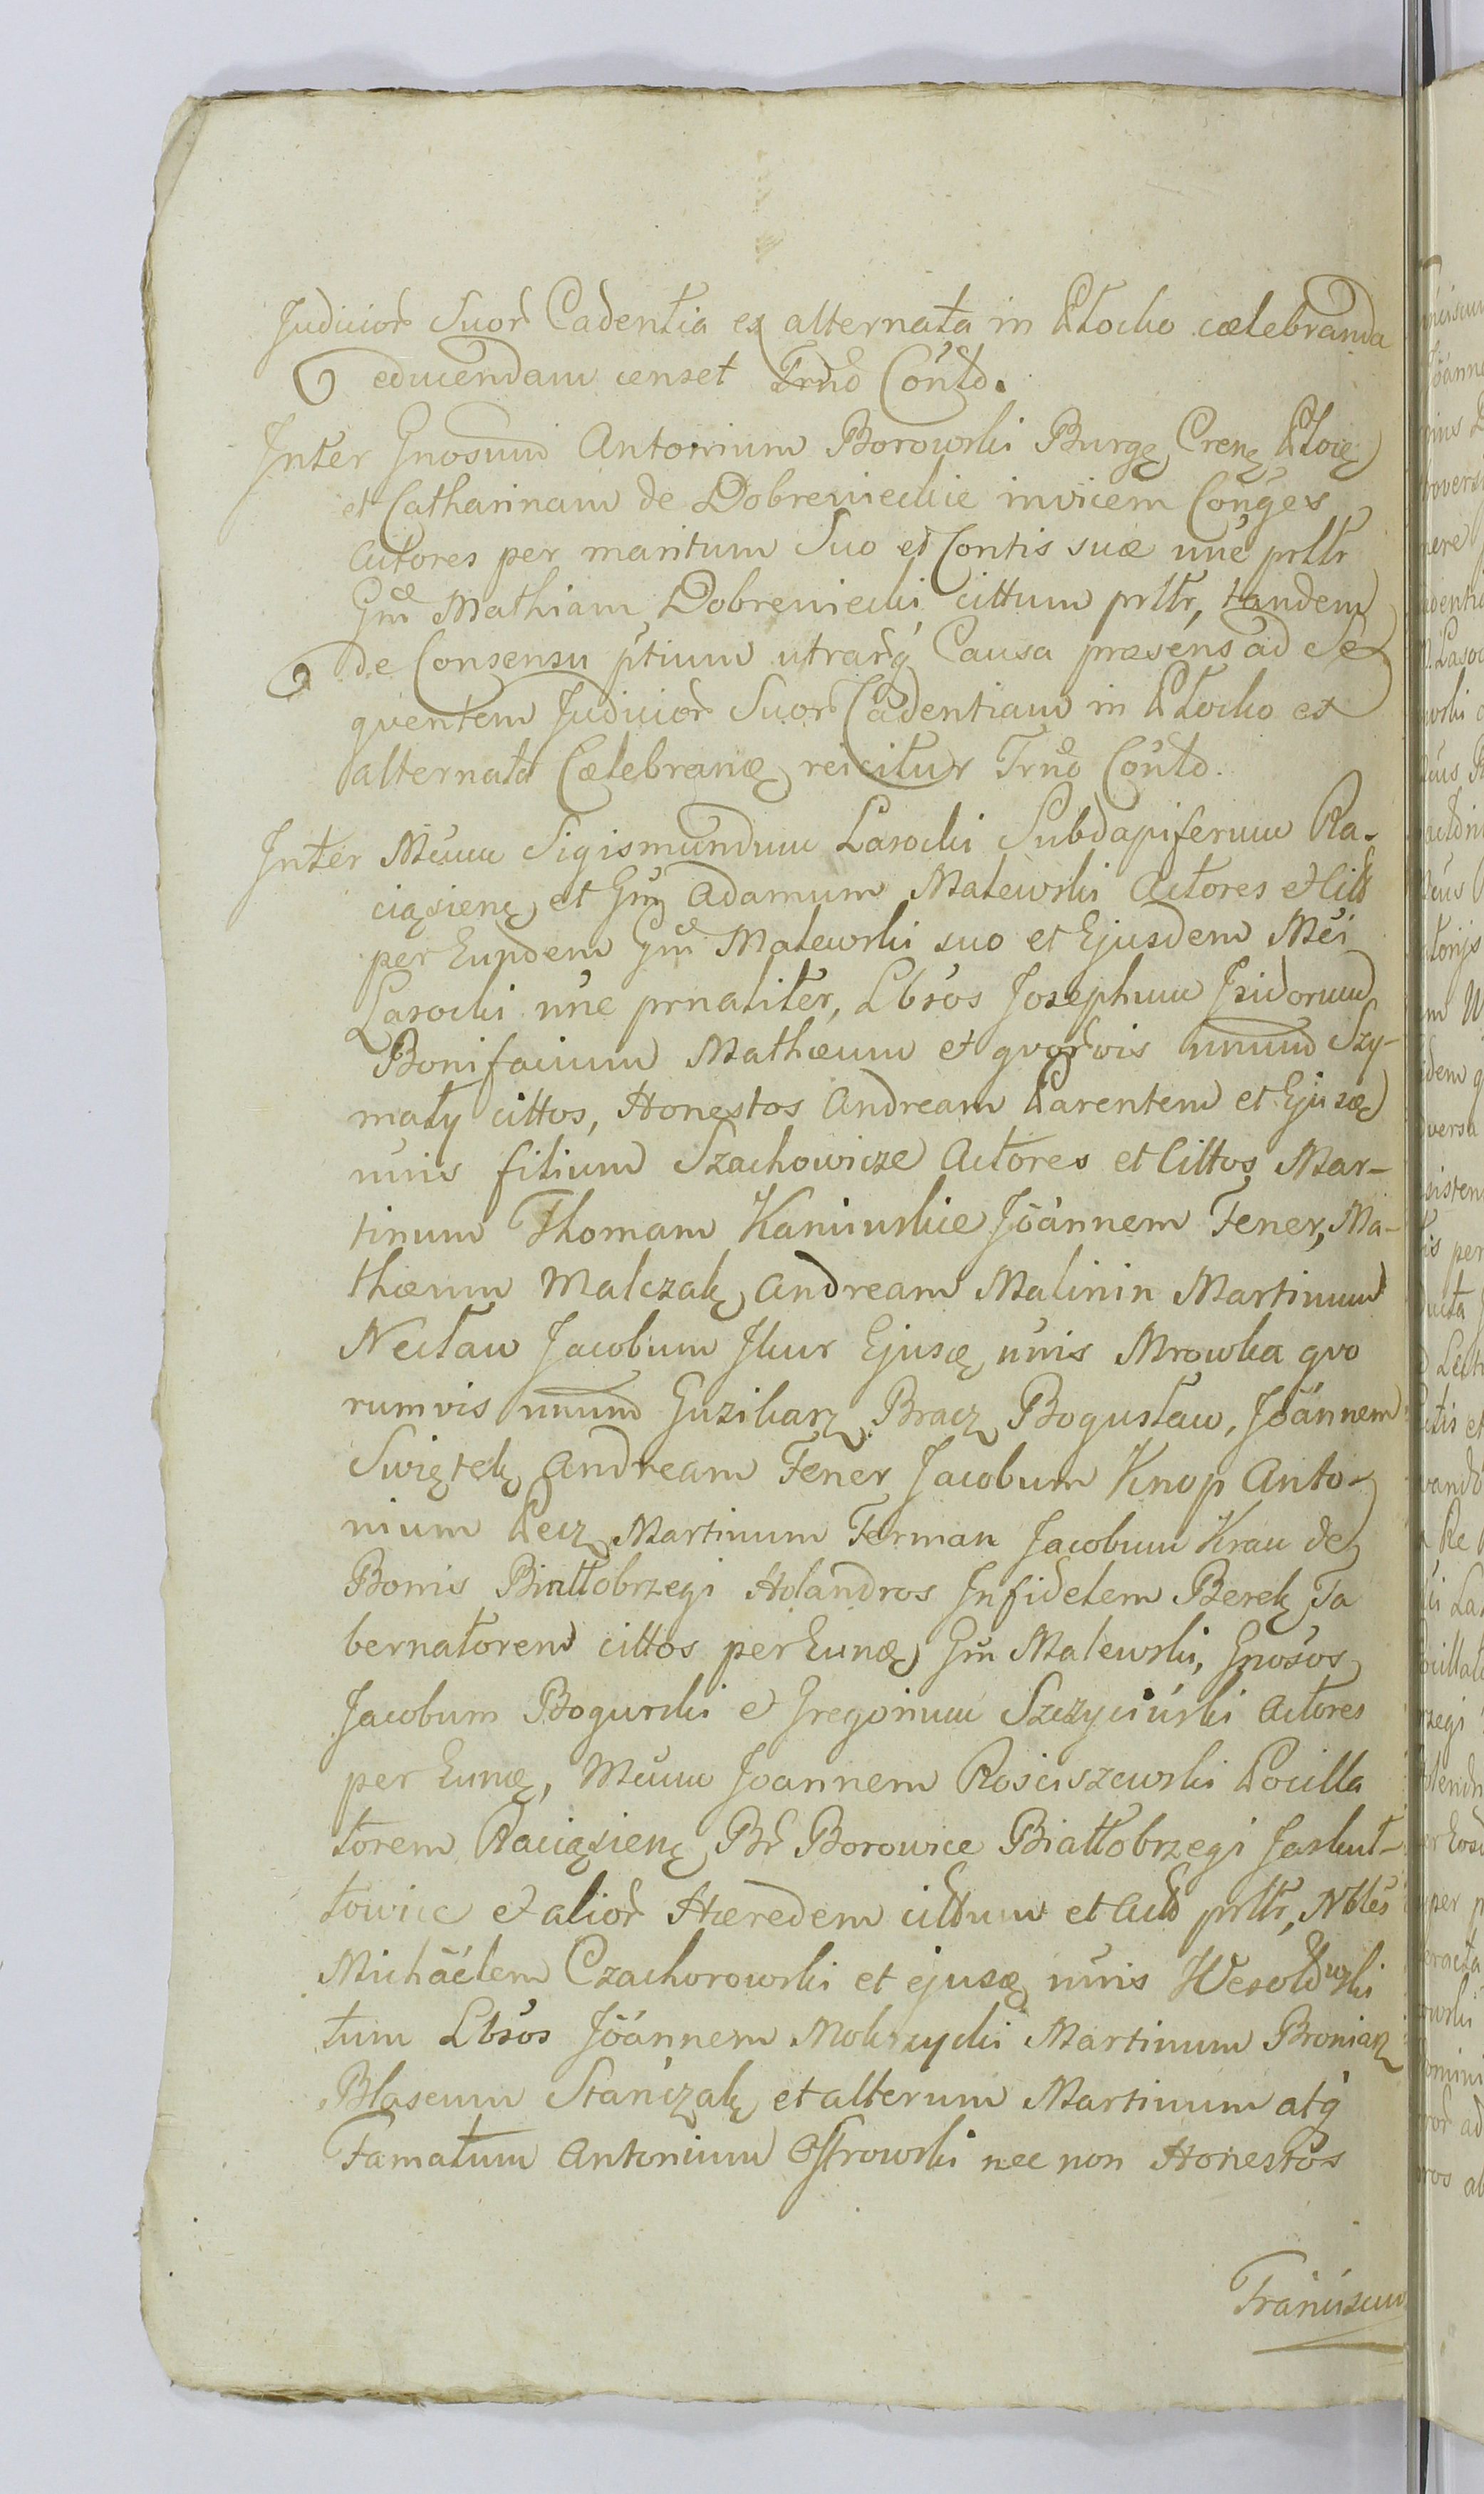 Judicior Suor Cadentia ex alternata in Plocko cælebranda
educendam censet Trno Conto.
Inter Gnosum Antonium Borowski Burgę Crenę Ploię
et Catharinam de Dobrenieckie invicem Conges
Actores per maritum Suo et Contis suæ nne prllr
Gm Mathiam Dobreniecki cittum prllr, tandem
de Consensu ptium utrarq Causa præsens ad Se
quentem Judicior Suor Cadentiam in Plocko ex
alternata Cælebranę reicitur Trno Conto.
Inter Mcum Sigismundum Lasocki Subdapiferum Ra-
ciąsienę et Gm Adamum Malewski Actores et Citt
per Eundem Gm Malewski suo et Ejusdem Mci
Lasocki nne prnaliter, Lbsos Josephum Isidorum
Bonifacium Mathæum et quorvis unum Szy-
mały cittos, Honestos Andream Parentem et Ejusę
nnis filium Szachowicze Actores et Cittos Mar-
tinum Thomam Kaminskie Joannem Fener, Ma-
thæum Malczak, Andream Malinin Martinum
Nectaw Jacobum Jkur Ejusę nnis Mrowka quo
rumvis unum Guzikarz Bracz Bogusław, Joannem
Swiętek Andream Fener Jacobum Knop Anto-
nium Pecz Martinum Ferman Jacobum Krau de
Bonis Białłobrzegi Holandros Infidelem Berek Ta
bernatorem cittos per Eunę Gm Malewski, Gnosos
Jacobum Bogurski et Gregorium Szczyciński Actores
per Eunę, Mcum Joannem Rosciszewski Pocilla
torem Raciąsienę Br Borowice Białłobrzegi Jaskuł-
towice et alior Hæredem cittum et Actt prllr, Nbles
Michaelem Czachorowski et ejusę nnis Wesołowski
tum Lbsos Joannem Mokrzycki Martinum Broniarz
Blaseum Stańczak et alterum Martinum atq
Famatum Antonium Ostrowski nec non Honestos
Franiscum